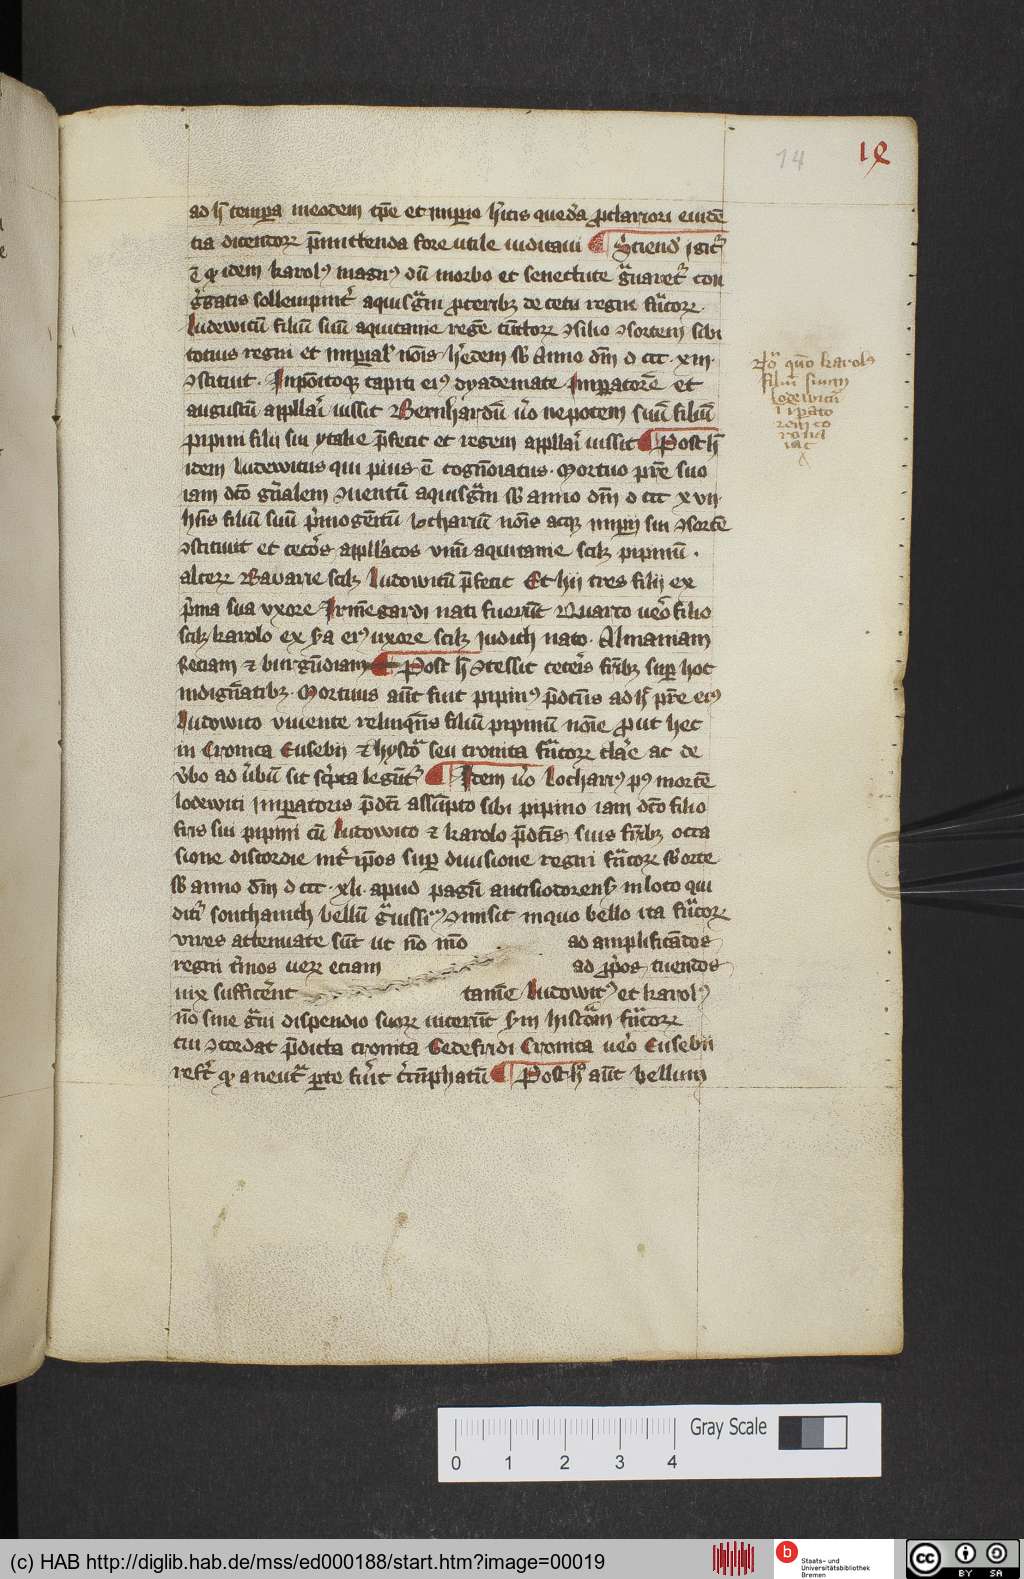 14 1e
ad h̄ tempora ineodem tp̄e et impio h̓itis queda᷒ p̄clariori euidē
tia dicendorꝝ p̄mittenda fore utile iudicaui Sciend᷒ igit᷑
ē ꝙ idem karol᷒ magn᷒ dū morbo et senectute g̾uaret᷑ con
g̓gatis sollempnit᷑ aquisg̾ni ꝓceribꝫ de tetu regni fn̄corꝝ
Ludewicū filiū suū aquitanie regē cūctorꝝ ꝯsilio ꝯsortem sibi
totius regni et imperial᷑ nōis h᷑edem sb̄ Anno dn̄i d ccc xiii
ꝯstituit. Inpōitoqꝫ capiti ei᷒ dyademate Imperatorē et
augustū appllar̄i iussit Bernhardū u̓o nepotem suū filiū
pipini filii sui ytalie p̄fecit et regem appllar̄i iussit Post h̄
idem ludewicus qui pius ē cogn̄oiatus. Mortuo pr̄e suo
iam dc̄o gn̄alem ꝯuentū aquisg̾ni sb̄ anno dn̄i d ccc xvii
hn̄s filiū suū p̓mogenitū lothariū nōis atqꝫ imperii sui ꝯsortē
ꝯstituit et cete̓os appll̄atos unū aquitanie scilꝫ pipinū.
alteꝝ Bavarie scilꝫ Ludowicū p̄fecit Et hii tres filii ex
p̓ma sua uxore Irmēgardi nati fuerūt Quarto ue̓o filio
scilꝫ karolo ex s̓a ei᷒ uxore scilꝫ Judich nato. Almaniam
Reciam ⁊ burgūdiam Post h̄ ꝯcessit cete̓is frībꝫ super hoc
indignātibꝫ. Mortuus aūt fuit pipin᷒ p̄dcūs ad h᷑ pr̄e ei᷒
Ludowico vivente relinquēs filiū pipinū noīe prout hec
in Cronica Eusebii ⁊ hystor̄ seu cronica fn̄corꝝ clar̄e ac de
v̓bo ad u̓bū sic sc̓pta legūt᷑ Item u̓o lothari᷒ p᷒ mortē
lodewici Imperatoris p̄dcī assūpto sibi pipino iam dc̄o filio
frīs sui pipini cū Ludowico ⁊ karolo p̄dcīs suis frībꝫ occa
sione discordie int᷑ ip̄os super diuisione regni fn̄corꝝ sb̓orte
sb̄ anno dn̄i d ccc xli apud pagū antisiodorens᷑ in loco qui
dit᷑ fonthanich bellū g̾uissi᷒ ꝯmisit inquo bello ita fn̄corꝝ
vires attenuate sūt ut nō mō ad amplificādos
regni t᷑minos ueꝝ eciam ad ꝓp̓os tuendos
uix suffice̓nt tamē Ludowic᷒ et karol᷒
nō sine g̾ui dispendio suorꝝ uicerūt s᷑m histor̄iam fn̄corꝝ
cui ꝯcordat p̄dicta cronica Gedefridi Cronica ue̓o Eusebii
refe̓t ꝙ a neut᷑ perte fue̓it t᷑ūphatū Post h᷒ aūt bellum
No quō karol᷒
filiū suum
Lodewicū
Imperato
rem co
(c) HAB http://diglib.hab.de/mss/ed000188/start.htm?image=00019
0 1 2 3 4
Gray Scale
Staats- und
Universitätsbibliothek
Bremen
cc BY SA